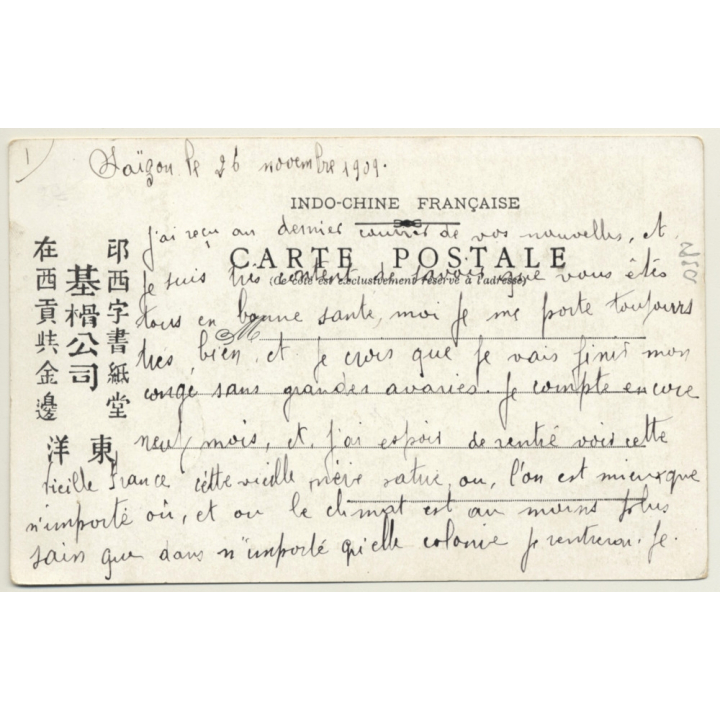 1)
Saïgon le 26 novembre 1909.
INDO-CHINE FRANÇAISE
j'ai reçu au dernier courrier de vos nouvelles, et
CARTE POSTALE
je suis très content de savoir que vous êtes
(Ce côté est exclusivement réservé à l'adresse)
tous en bonne santé, moi je me porte toujours
très bien, et je crois que je vais finir mon
congé sans grandes avaries. Je compte encore
neuf mois, et j'ai espoir de rentré voir cette
vieille France cette vieille mère ou, l'on est mieux que
n'importé où, et ou le climat est au moins plus
sain que dans n'importé qu'elle colonie je rentrerai. je.
印西字書紙堂
基楿公司
在西貢共金邊
東洋